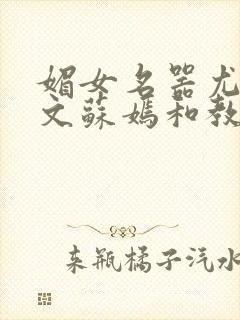 媚女名器尤
文蘇媽和教
来瓶橘子汽水